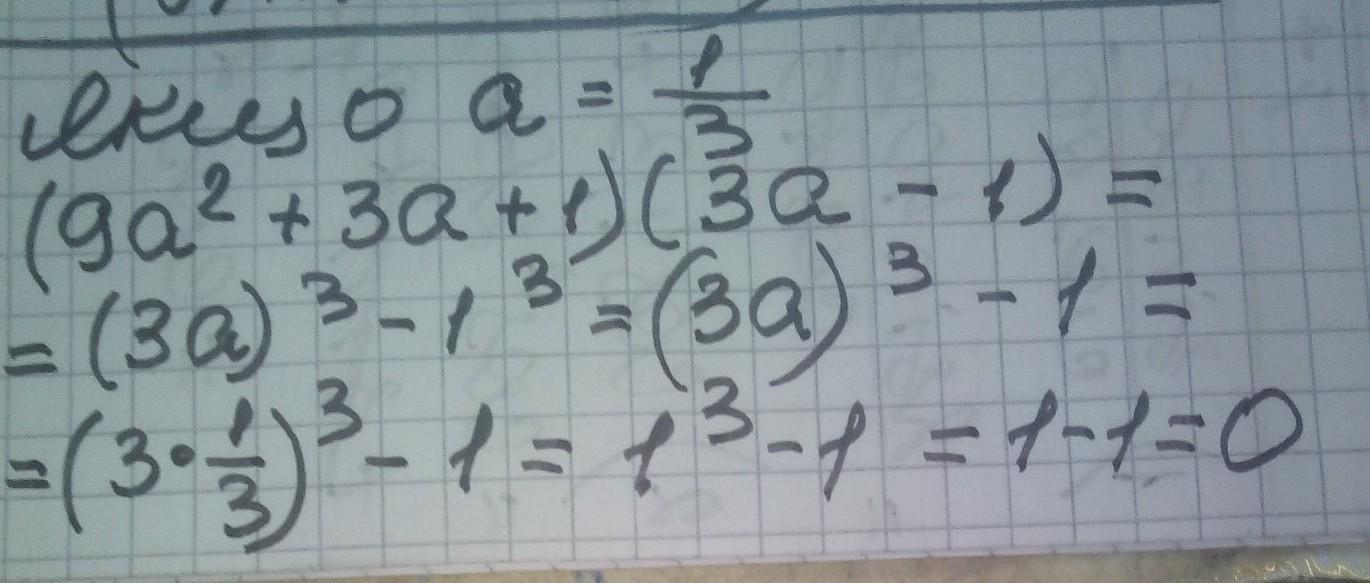 якщо a = 1/3
(9a² + 3a + 1)(3a - 1) =
= (3a)³ - 1³ = (3a)³ - 1 =
= (3 · 1/3)³ - 1 = 1³ - 1 = 1 - 1 = 0